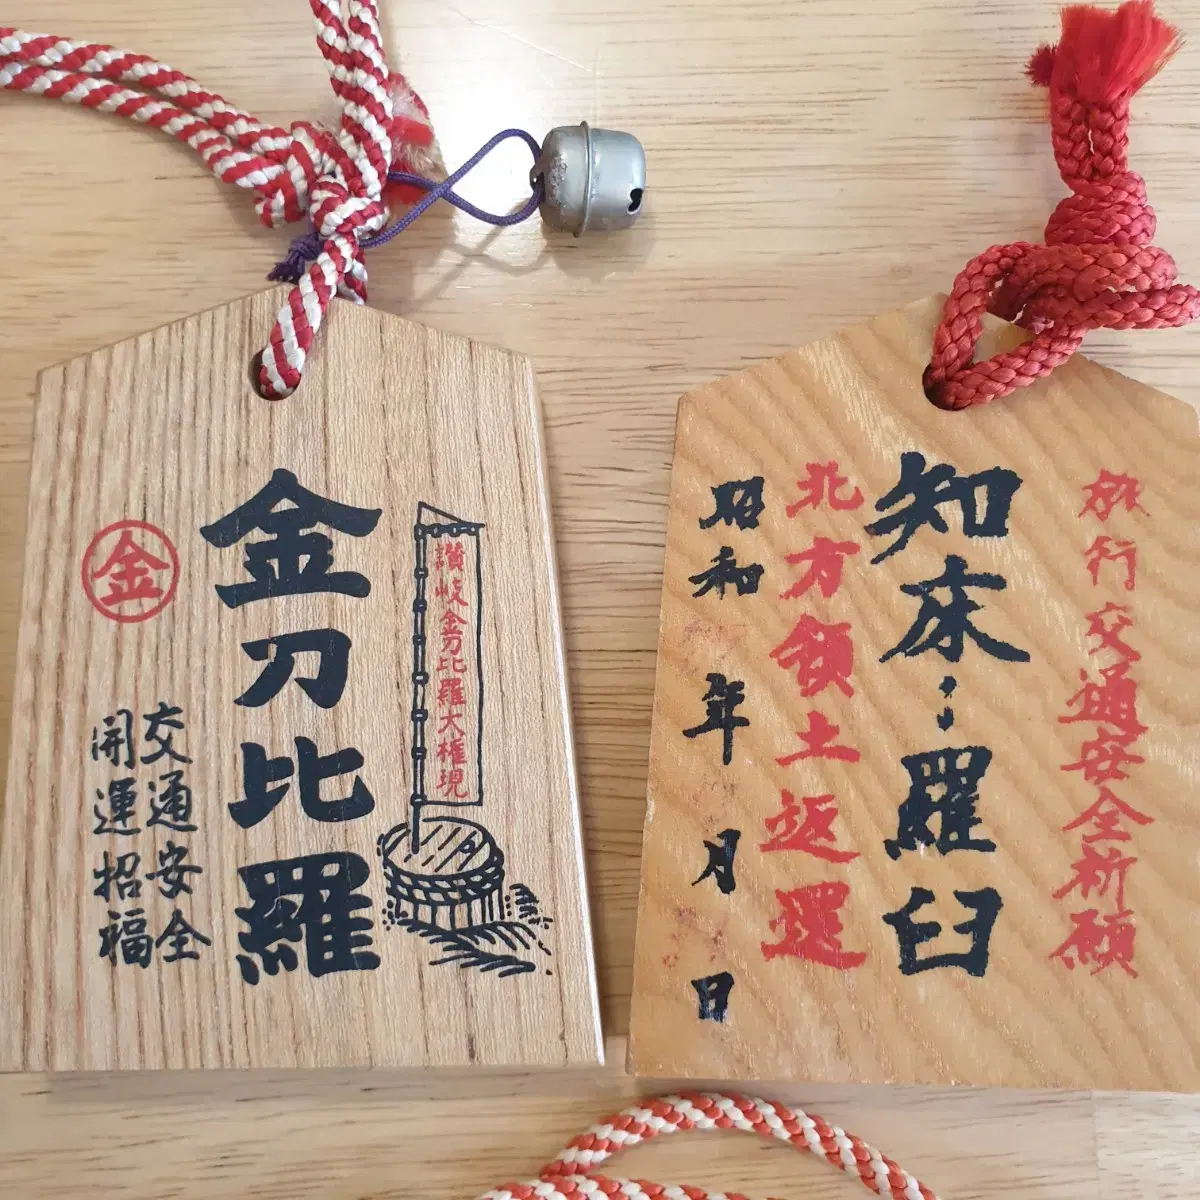 讃岐金刀比羅大権現
金刀比羅
金
交通安全
開運招福
旅行交通安全祈願
知床・羅臼
北方領土返還
昭和 年 月 日